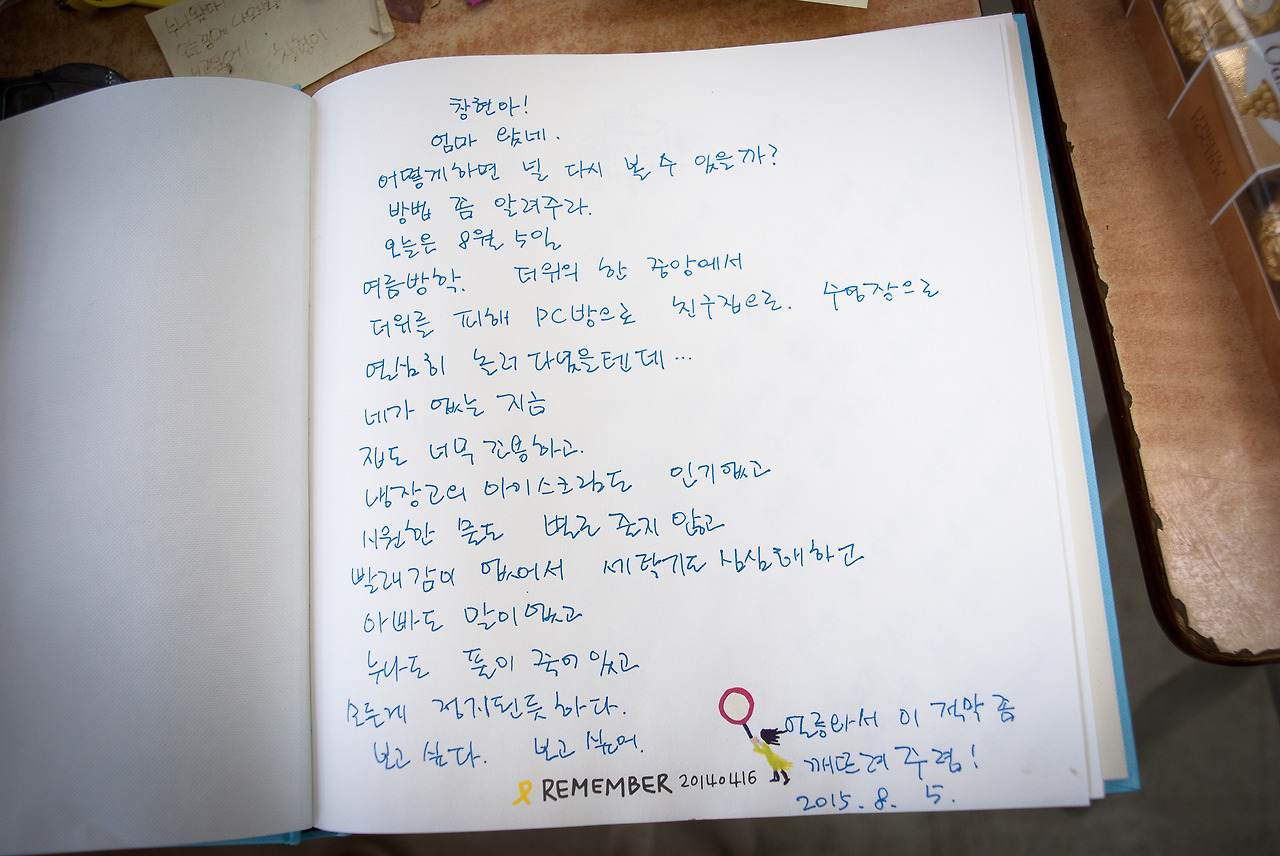 창현아!
엄마 왔네.
어떻게하면 널 다시 볼 수 있을까?
방법 좀 알려주라.
오늘은 8월 5일
여름방학. 더위의 한 중앙에서
더위를 피해 PC방으로 친구집으로. 수영장으로
열심히 놀러 다녔을텐데...
네가 없는 지금
집도 너무 조용하고.
냉장고의 아이스크림도 인기없고
시원한 물도 별로 줄지 않고
빨래감이 없어서 세탁기도 심심해하고
아빠도 말이없고
누나도 풀이 죽어 있고
모든게 정지된듯하다.
보고 싶다. 보고 싶어.
얼릉와서 이 적막 좀
깨뜨려 주렴!
2015. 8. 5.
REMEMBER 20140416